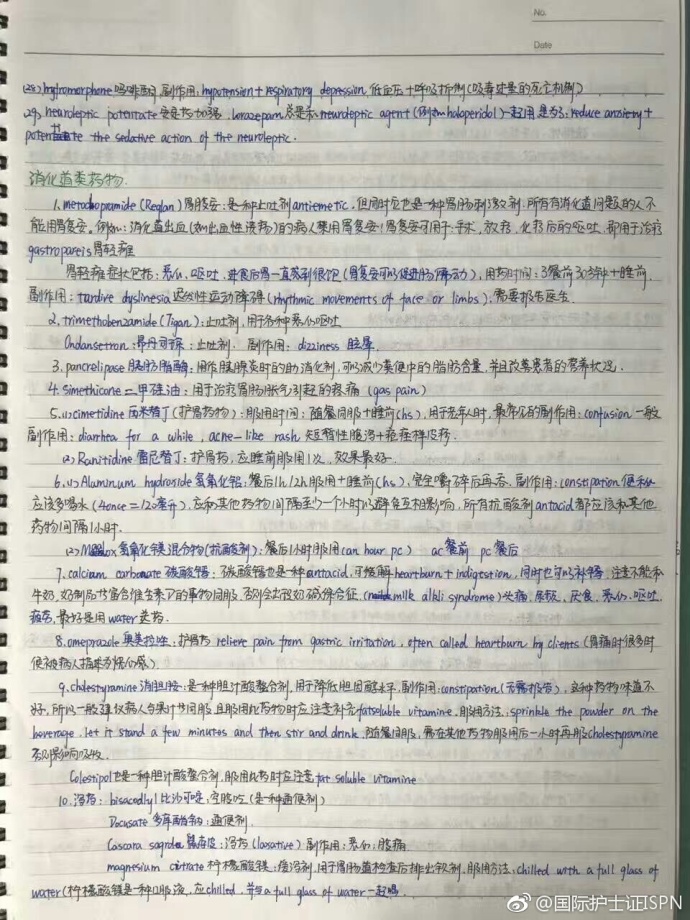 No.
Date
(28) hydromorphone 吗啡酮 副作用: hypotension + respiratory depression, 低血压+呼吸抑制 (吸毒过量的死亡机制)
29. neuroleptic potentate 安定药加强. lorazepam 总是和 neuroleptic agent (例如 haloperidol) 一起用 是为了: reduce anxiety +
potentiate the sedative action of the neuroleptic.
消化道类药物.
1. metoclopramide (Reglan) 胃复安: 是一种止吐剂 antiemetic, 但同时它也是一种胃肠刺激剂. 所有有消化道问题的人不
能用胃复安, 例如: 消化道出血 (如出血性溃疡) 的病人禁用胃复安! 胃复安可用于: 手术, 放疗, 化疗后的呕吐, 即用于治疗
gastroparesis 胃轻瘫
胃轻瘫症状包括: 恶心, 呕吐, 进食后胃一直感到很饱 (胃复安可以促进肠蠕动), 用药时间: 3餐前30分钟+睡前.
副作用: tardive dyslinesia 迟发性运动障碍 (rhythmic movements of face or limbs), 需要报告医生.
2. trimethobenzamide (Tigan): 止吐剂, 用于各种恶心呕吐
Ondansetron: 昂丹司琼: 止吐剂. 副作用: dizziness 眩晕.
3. pancrelipase 胰脂肪酶: 用作胰腺炎时的助消化剂, 可以减少粪便中的脂肪含量, 并且改善患者的营养状况.
4. simethicone 二甲硅油: 用于治疗胃肠胀气引起的疼痛 (gas pain)
5. (1) cimetidine 西米替丁 (护胃药物): 服用时间: 随餐同服+睡前(hs), 用于老年人时, 最常见的副作用: confusion 一般
副作用: diarrhea for a while, acne-like rash 短暂性腹泻+痤疮样皮疹.
(2) Ranitidine 雷尼替丁: 护胃药, 应睡前服用1次, 效果最好.
6. (1) Aluminum hydroside 氢氧化铝: 餐后1h/2h服用+睡前(hs), 完全嚼碎后再吞. 副作用: constipation 便秘
应该多喝水 (4once = 120毫升), 应和其他药物间隔至少一个小时以避免互相影响, 所有抗酸剂 antacid 都应该和其他
药物间隔1小时.
(2) Maalox 氢氧化镁混合物(抗酸剂): 餐后1小时服用(an hour pc) ac餐前 pc餐后
7. calcium carbonate 碳酸钙: 碳酸钙也是一种 antacid, 可缓解 heartburn + indigestion, 同时也可以补钙, 注意不能和
牛奶, 奶制品与富含维生素D的事物同服, 否则会出现奶碱综合征 (milk alkli syndrome) 头痛, 尿频, 厌食, 恶心, 呕吐,
疲劳, 最好是用 water 送药.
8. omeprazole 奥美拉唑: 护胃药 relieve pain from gastric irritation, often called heartburn by clients (胃痛时很多时
候被病人描述为烧心感).
9. cholestyramine 消胆胺: 是一种胆汁酸螯合剂, 用于降低胆固醇水平, 副作用: constipation (无需报告), 这种药物味道不
好, 所以一般建议病人与果汁同服, 且服用此药物时应注意补充 fatsoluble vitamine, 服用方法: sprinkle the powder on the
beverage, let it stand a few minutes and then stir and drink, 随餐同服, 需在其他药物服用后一小时再服 cholestyramine
否则影响吸收.
Colestipol 也是一种胆汁酸螯合剂, 服用此药时应注意 fat soluble vitamine
10. 泻药: bisacodyl 比沙可啶, 空腹吃 (是一种通便剂)
Docusate 多库酯钠: 通便剂.
Cascara sagrda 鼠李皮: 泻药 (laxative) 副作用: 恶心, 腹痛.
magnesium citrate 柠檬酸镁: 缓泻剂, 用于胃肠道检查后排出钡剂, 服用方法: chilled with a full glass of
water (柠檬酸镁是一种口服液, 应chilled, 并与 a full glass of water 一起喝.
@国际护士证ISPN